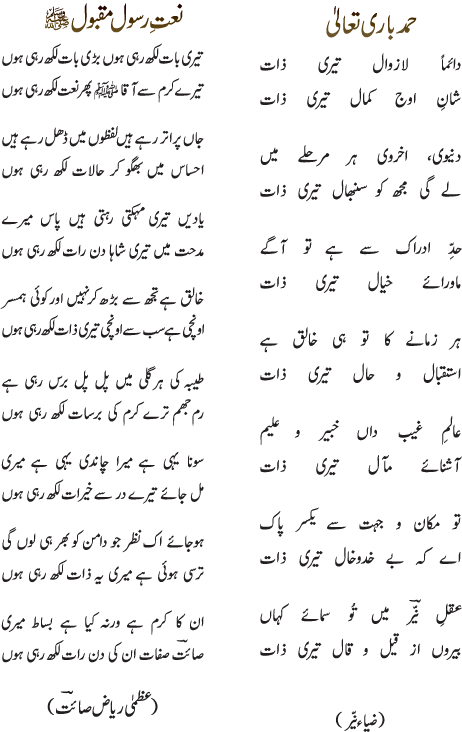 حمد باری تعالیٰ
دائماً لازوال تیری ذات
شانِ اوج کمال تیری ذات
دنیوی، اخروی ہر مرحلے میں
لے گی مجھ کو سنبھال تیری ذات
حدِّ ادراک سے ہے تو آگے
ماورائے خیال تیری ذات
ہر زمانے کا تو ہی خالق ہے
استقبال و حال تیری ذات
عالمِ غیب داں خبیر و علیم
آشنائے مآل تیری ذات
تو مکان و جہت سے یکسر پاک
اے کہ بے خدوخال تیری ذات
عقلِ نیّرؔ میں تُو سمائے کہاں
بیروں از قیل و قال تیری ذات
(ضیاء نیّر)
نعتِ رسول مقبول ﷺ
تیری بات لکھ رہی ہوں بڑی بات لکھ رہی ہوں
تیرے کرم سے آقا ﷺ پھر نعت لکھ رہی ہوں
جاں پراتر رہے ہیں لفظوں میں ڈھل رہے ہیں
احساس میں بھگو کر حالات لکھ رہی ہوں
یادیں تیری مہکتی رہتی ہیں پاس میرے
مدحت میں تیری شاہا دن رات لکھ رہی ہوں
خالق ہے تجھ سے بڑھ کر نہیں اور کوئی ہمسر
اونچی ہے سب سے اونچی تیری ذات لکھ رہی ہوں
طیبہ کی ہر گلی میں پل پل برس رہی ہے
رم جھم ترے کرم کی برسات لکھ رہی ہوں
سونا یہی ہے میرا چاندی یہی ہے میری
مل جائے تیرے در سے خیرات لکھ رہی ہوں
ہوجائے اک نظر جو دامن کو بھر ہی لوں گی
ترسی ہوئی ہے میری یہ ذات لکھ رہی ہوں
ان کا کرم ہے ورنہ کیا ہے بساط میری
صائمؔت صفات ان کی دن رات لکھ رہی ہوں
(عظمیٰ ریاض صائمؔت)